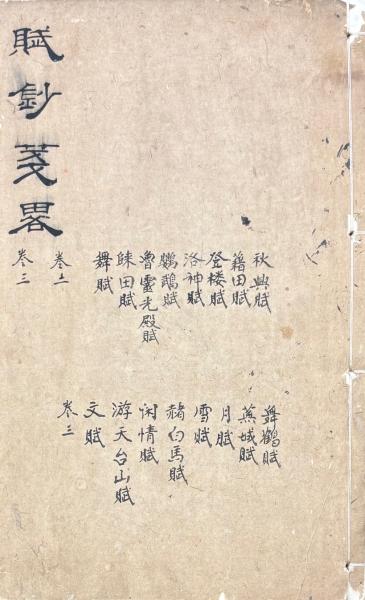 賦鈔箋畧
卷二
卷三
秋興賦
籍田賦
登楼賦
洛神賦
鸚鵡賦
魯靈光殿賦
舞賦
舞鶴賦
蕪城賦
月賦
雪賦
赭白馬賦
闲情賦
游天台山賦
文賦
卷三